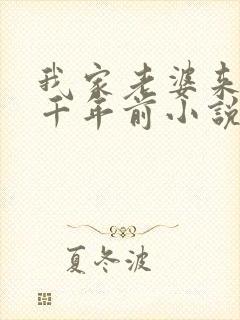 我家老婆来
千年前小説
夏冬波